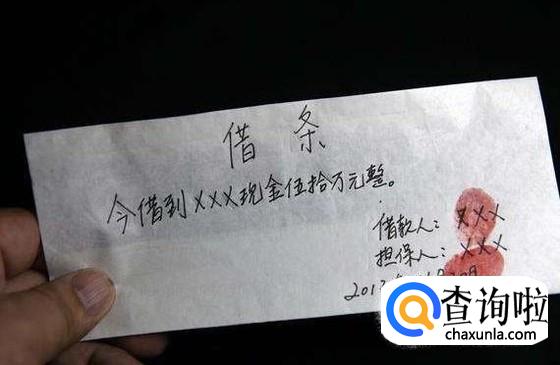 借条
今借到XXX现金伍拾万元整。
借款人:XXX
担保人:XXX
查询啦
chaxunla.com